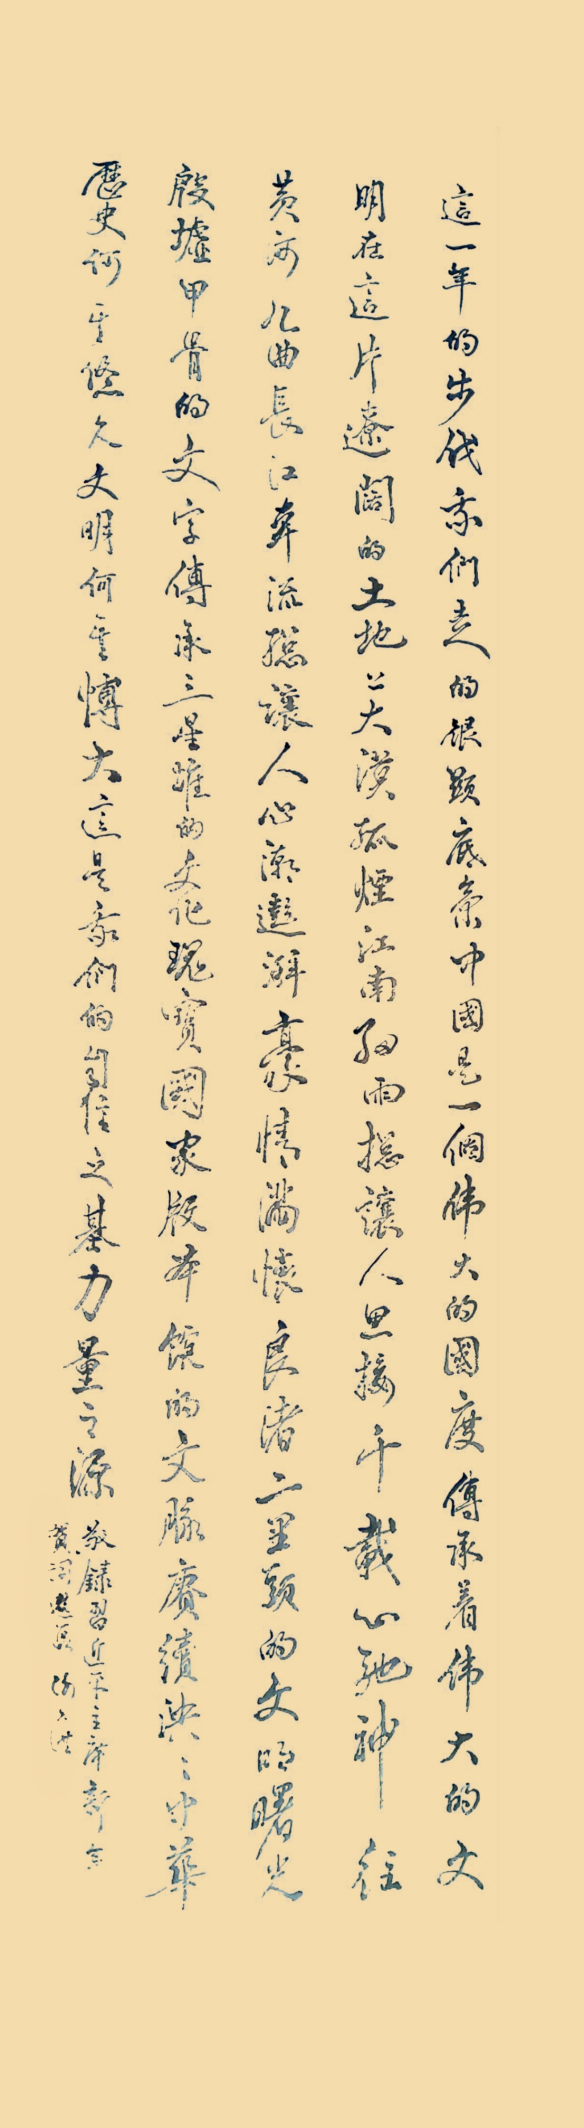 這一年的步伐我們走的很顯底氣中國是一個偉大的國度傳承着偉大的文
明在這片遼闊的土地上大漠孤煙江南細雨總讓人思接千載心馳神往
黃河九曲長江奔流總讓人心潮澎湃豪情滿懷良渚二里頭的文明曙光
殷墟甲骨的文字傳承三星堆的文化瑰寶國家版本館的文脉賡續泱泱中華
歷史何其悠久文明何其博大這是我們的自信之基力量之源
敬錄習近平主席新年
賀詞